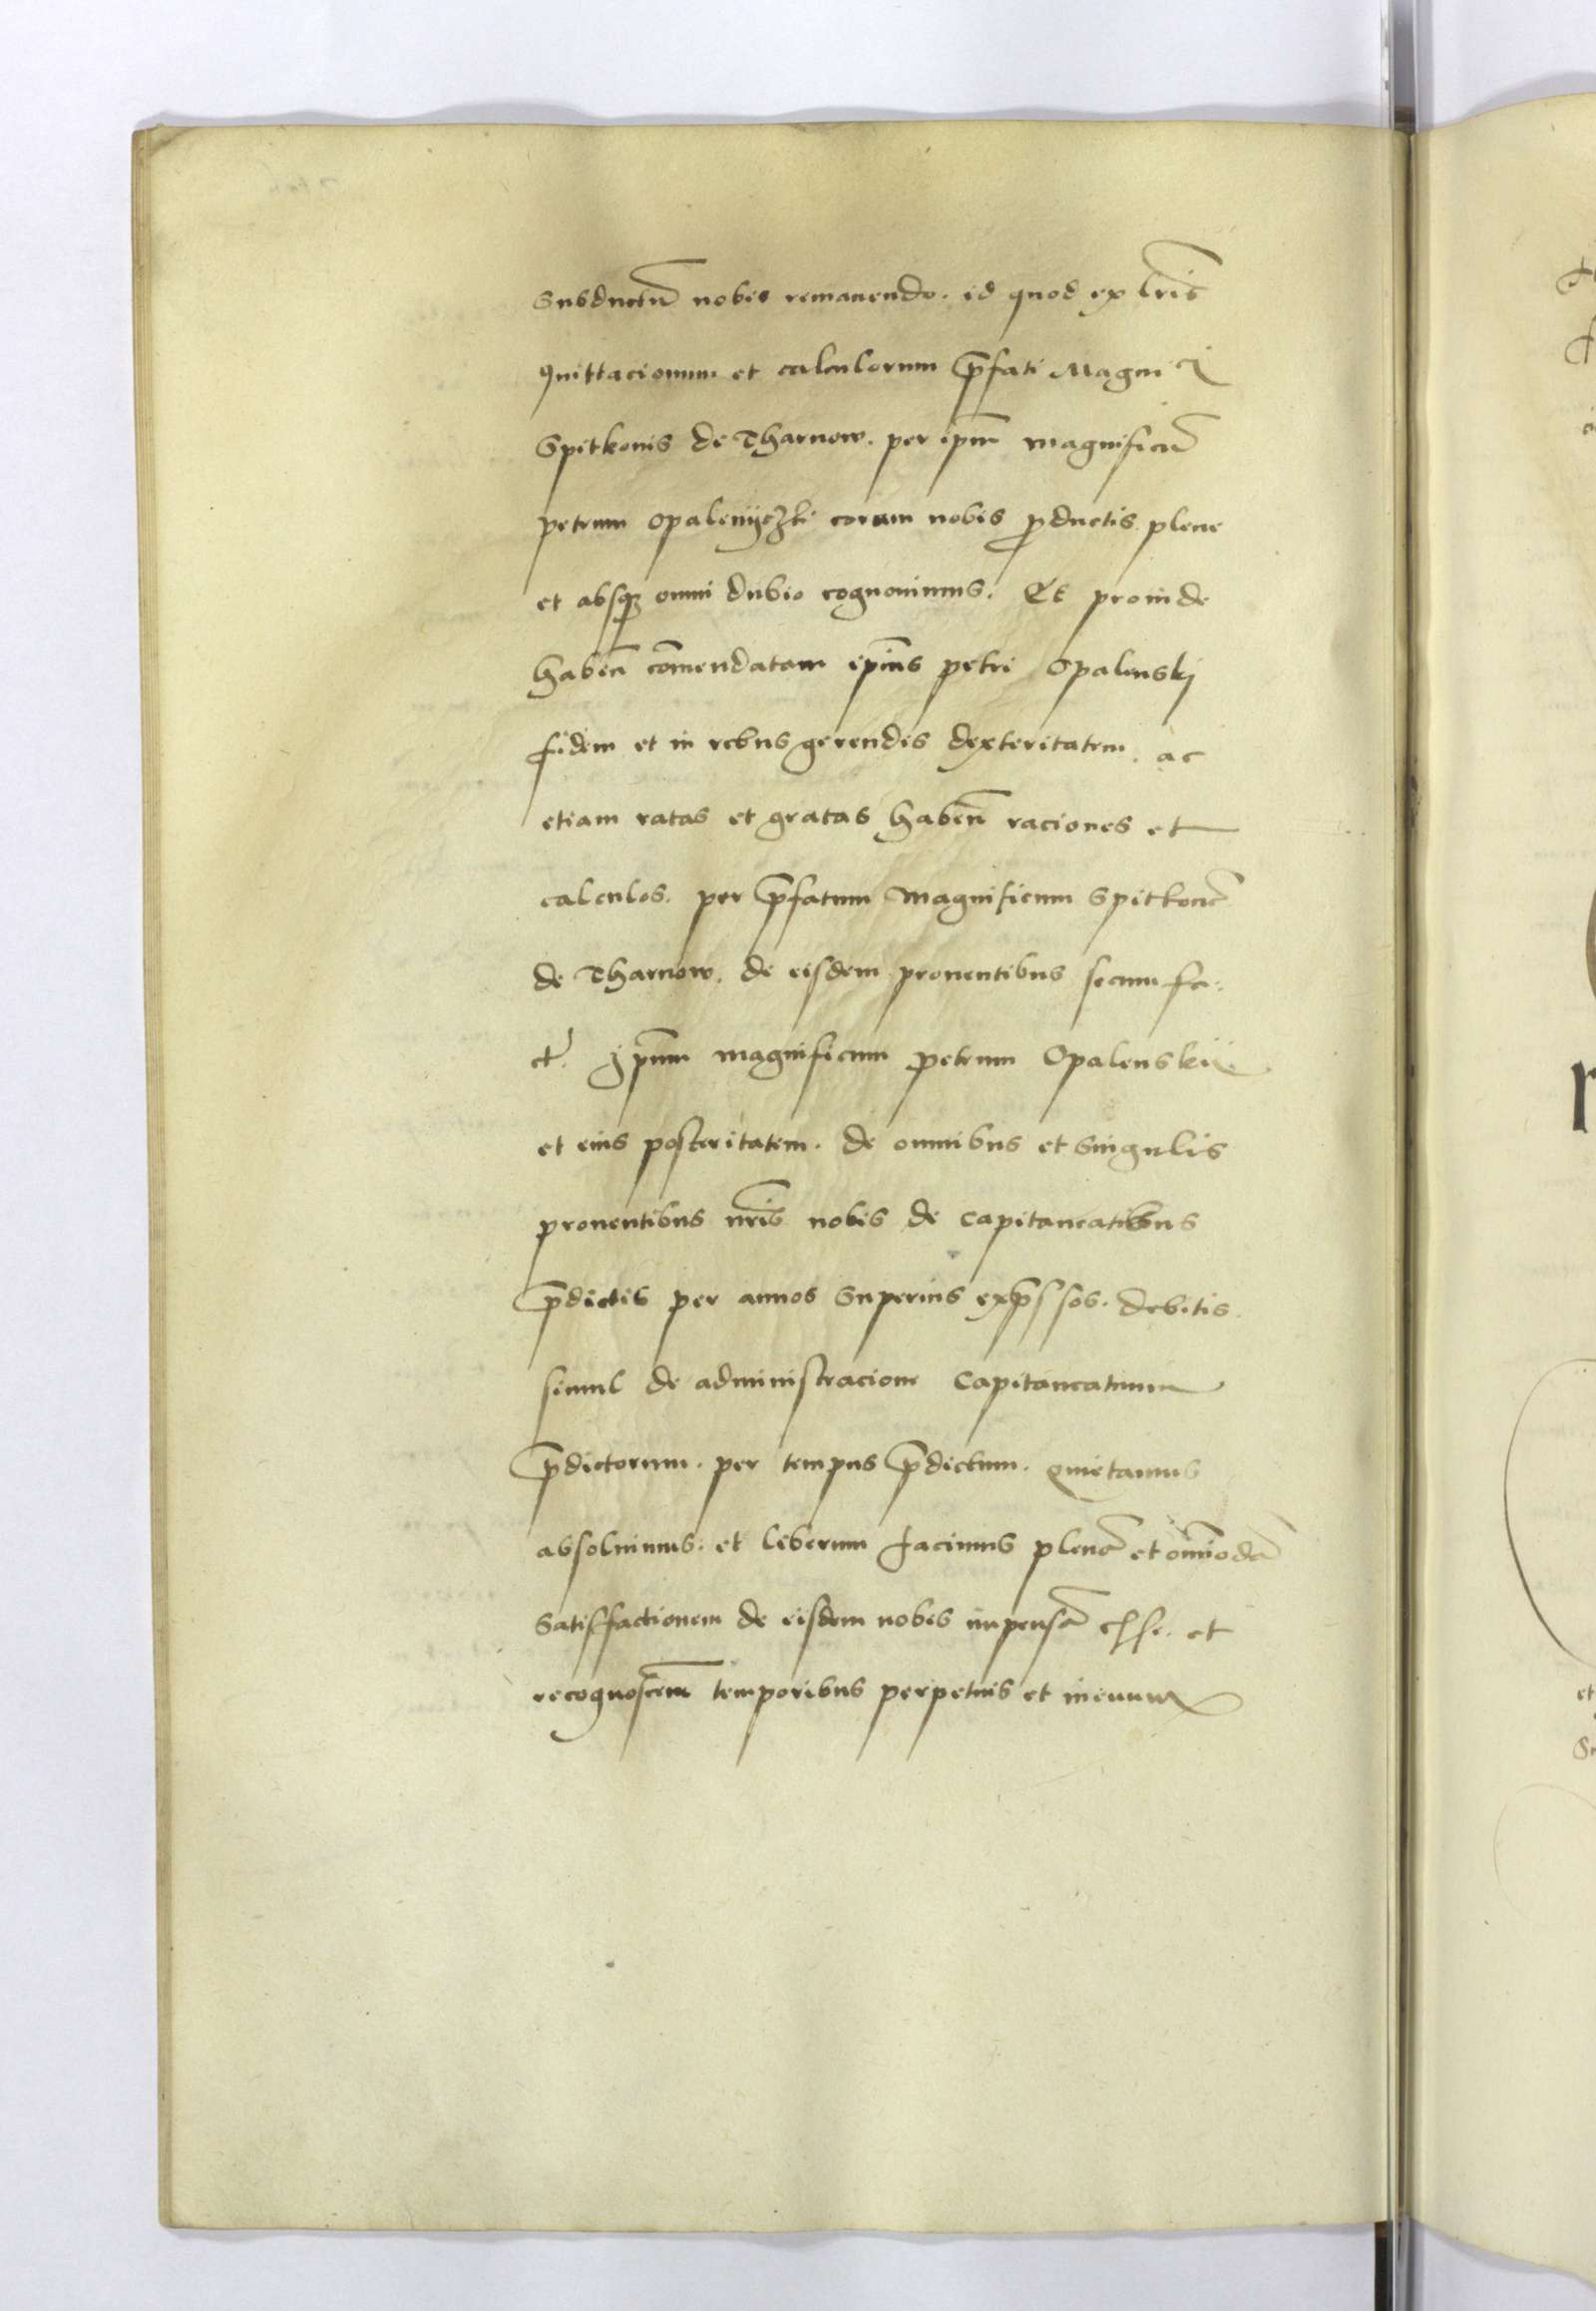 Subductū nobis remanendo. id quod ex lr̄is
quittacionum et calculorum p̄fati Magnici
Spitkonis de Tharnow. per ip̄m magnificū
petrum Opalenijczki coram nobis productis plene
et absq̨ omni dubio cognouimus. Et proinde
haben̄ com̄endatam ip̄ius petri Opalenskj
fidem et in rebus gerendis dexteritatem. ac
etiam ratas et gratas haben̄ raciones et
calculos. per p̄fatum Magnificum Spitkonē
de Tharnow. de eisdem prouentibus secum fa-
ct. Ip̄um magnificum petrum Opalenskii
et eius posteritatem. de omnibus et Singulis
prouentibus nr̄is nobis de capitaneatibus
p̄dictis per annos Superius exp̄ssos. debitis
simul de administracione Capitaneatuum
p̄dictorum. per tempus p̄dictum. quietamus
absoluimus. et liberum facimus plenā et om̄imodā
Satisfactionem de eisdem nobis impensā esse. et
recognoscen̄ temporibus perpetuis et in euum